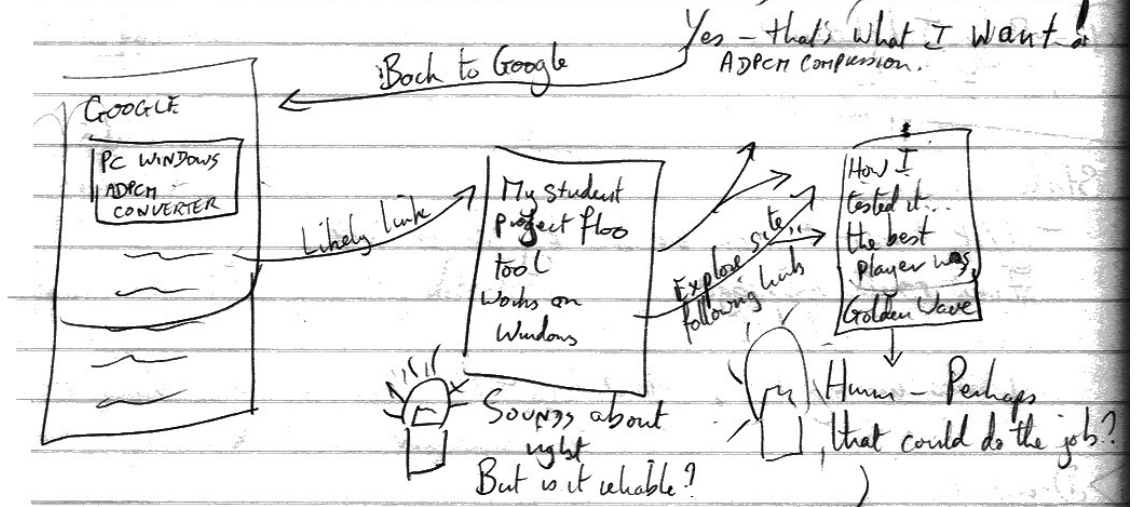 Yes – that's what I want!
ADPCM COMPRESSION.
Back to Google
GOOGLE
PC WINDOWS
ADPCM
CONVERTER
Likely link
My student
project floo
tool
Works on
Windows
Explore site,
following links
How I
tested it...
the best
player was
Golden Wave
Sounds about
right
But is it reliable?
Humm – Perhaps
that could do the job?